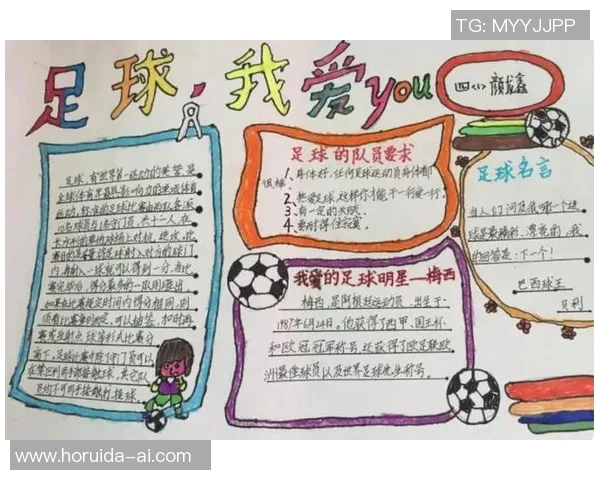 TG: MYYJJPP
足球，我爱you
四〈1〉颜龙鑫
足球，有"世界第一运动"的美誉，是
全球体育界最具影响力的单项体育
运动，标准的足球比赛由两队各派
10名球员与1名守门员，共十二人，在
长方形的草地球场上对抗、进攻，比
赛目的是尽量将足球射入对方的球门
内，每射入一球就可以得到一分，当比
赛完毕后，得分最多的一队则胜出，
如果在比赛规定时间内得分相同，则
须看比赛章则而定，可以抽签、加时再
赛或互射点球等形式比赛分
高下，足球比赛中除了守门员可以
在禁区利用手部接触足球，其它队
员均不可用手接触打、接球。
足球的队员要求
1、身体好，任何足球运动员身体都
很棒。
2、热爱足球，这样你才能干一行爱一行。
3、有一定的天赋。
4、要耐得住寂寞。
我的足球明星—梅西
梅西，是阿根廷运动员，出生于
1987年6月24日，他获得了西甲、国王杯
和欧冠冠军称号，还获得了欧足联欧
洲最佳球员以及世界足球先生称号。
足球名言
当人们问及我哪一个进
球是最精彩、漂亮的，我
的回答是：下一个！
巴西球王
贝利
www.horuida-ai.com